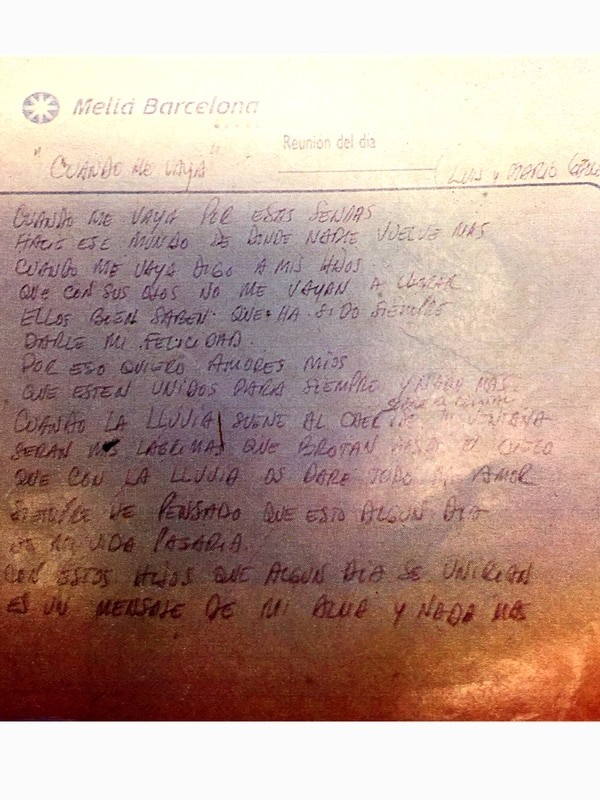 Meliá Barcelona
Reunión del día
"CUANDO ME VAYA" (LUIS Y MARIO
CUANDO ME VAYA POR ESTAS SENDAS
HACIA ESE MUNDO DE DONDE NADIE VUELVE MAS
CUANDO ME VAYA DIGO A MIS HIJOS
QUE CON SUS OJOS NO ME VAYAN A LLORAR
ELLOS BIEN SABEN QUE HA SIDO SIEMPRE
DARLE MI FELICIDAD.
POR ESO QUIERO AMORES MIOS
QUE ESTEN UNIDOS PARA SIEMPRE Y NADA MAS
CUANDO LA LLUVIA SUENE AL CAER VENTANA
SERAN MIS LAGRIMAS QUE BROTAN
QUE CON LA LLUVIA OS DARE TODO MI AMOR
SIEMPRE HE PENSADO QUE ESTO ALGUN DIA
MI VIDA PASARIA.
CON ESTOS HIJOS QUE ALGUN DIA SE UNIRIAN
ES UN MENSAJE DE MI ALMA Y NADA MAS